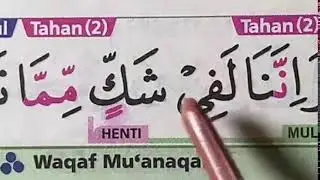 Tahan (2) Tahan (2)
اِنَّنَا لَفِيْ شَكٍّ مِّمَّا
HENTI MUL
Waqaf Mu‘anaqa